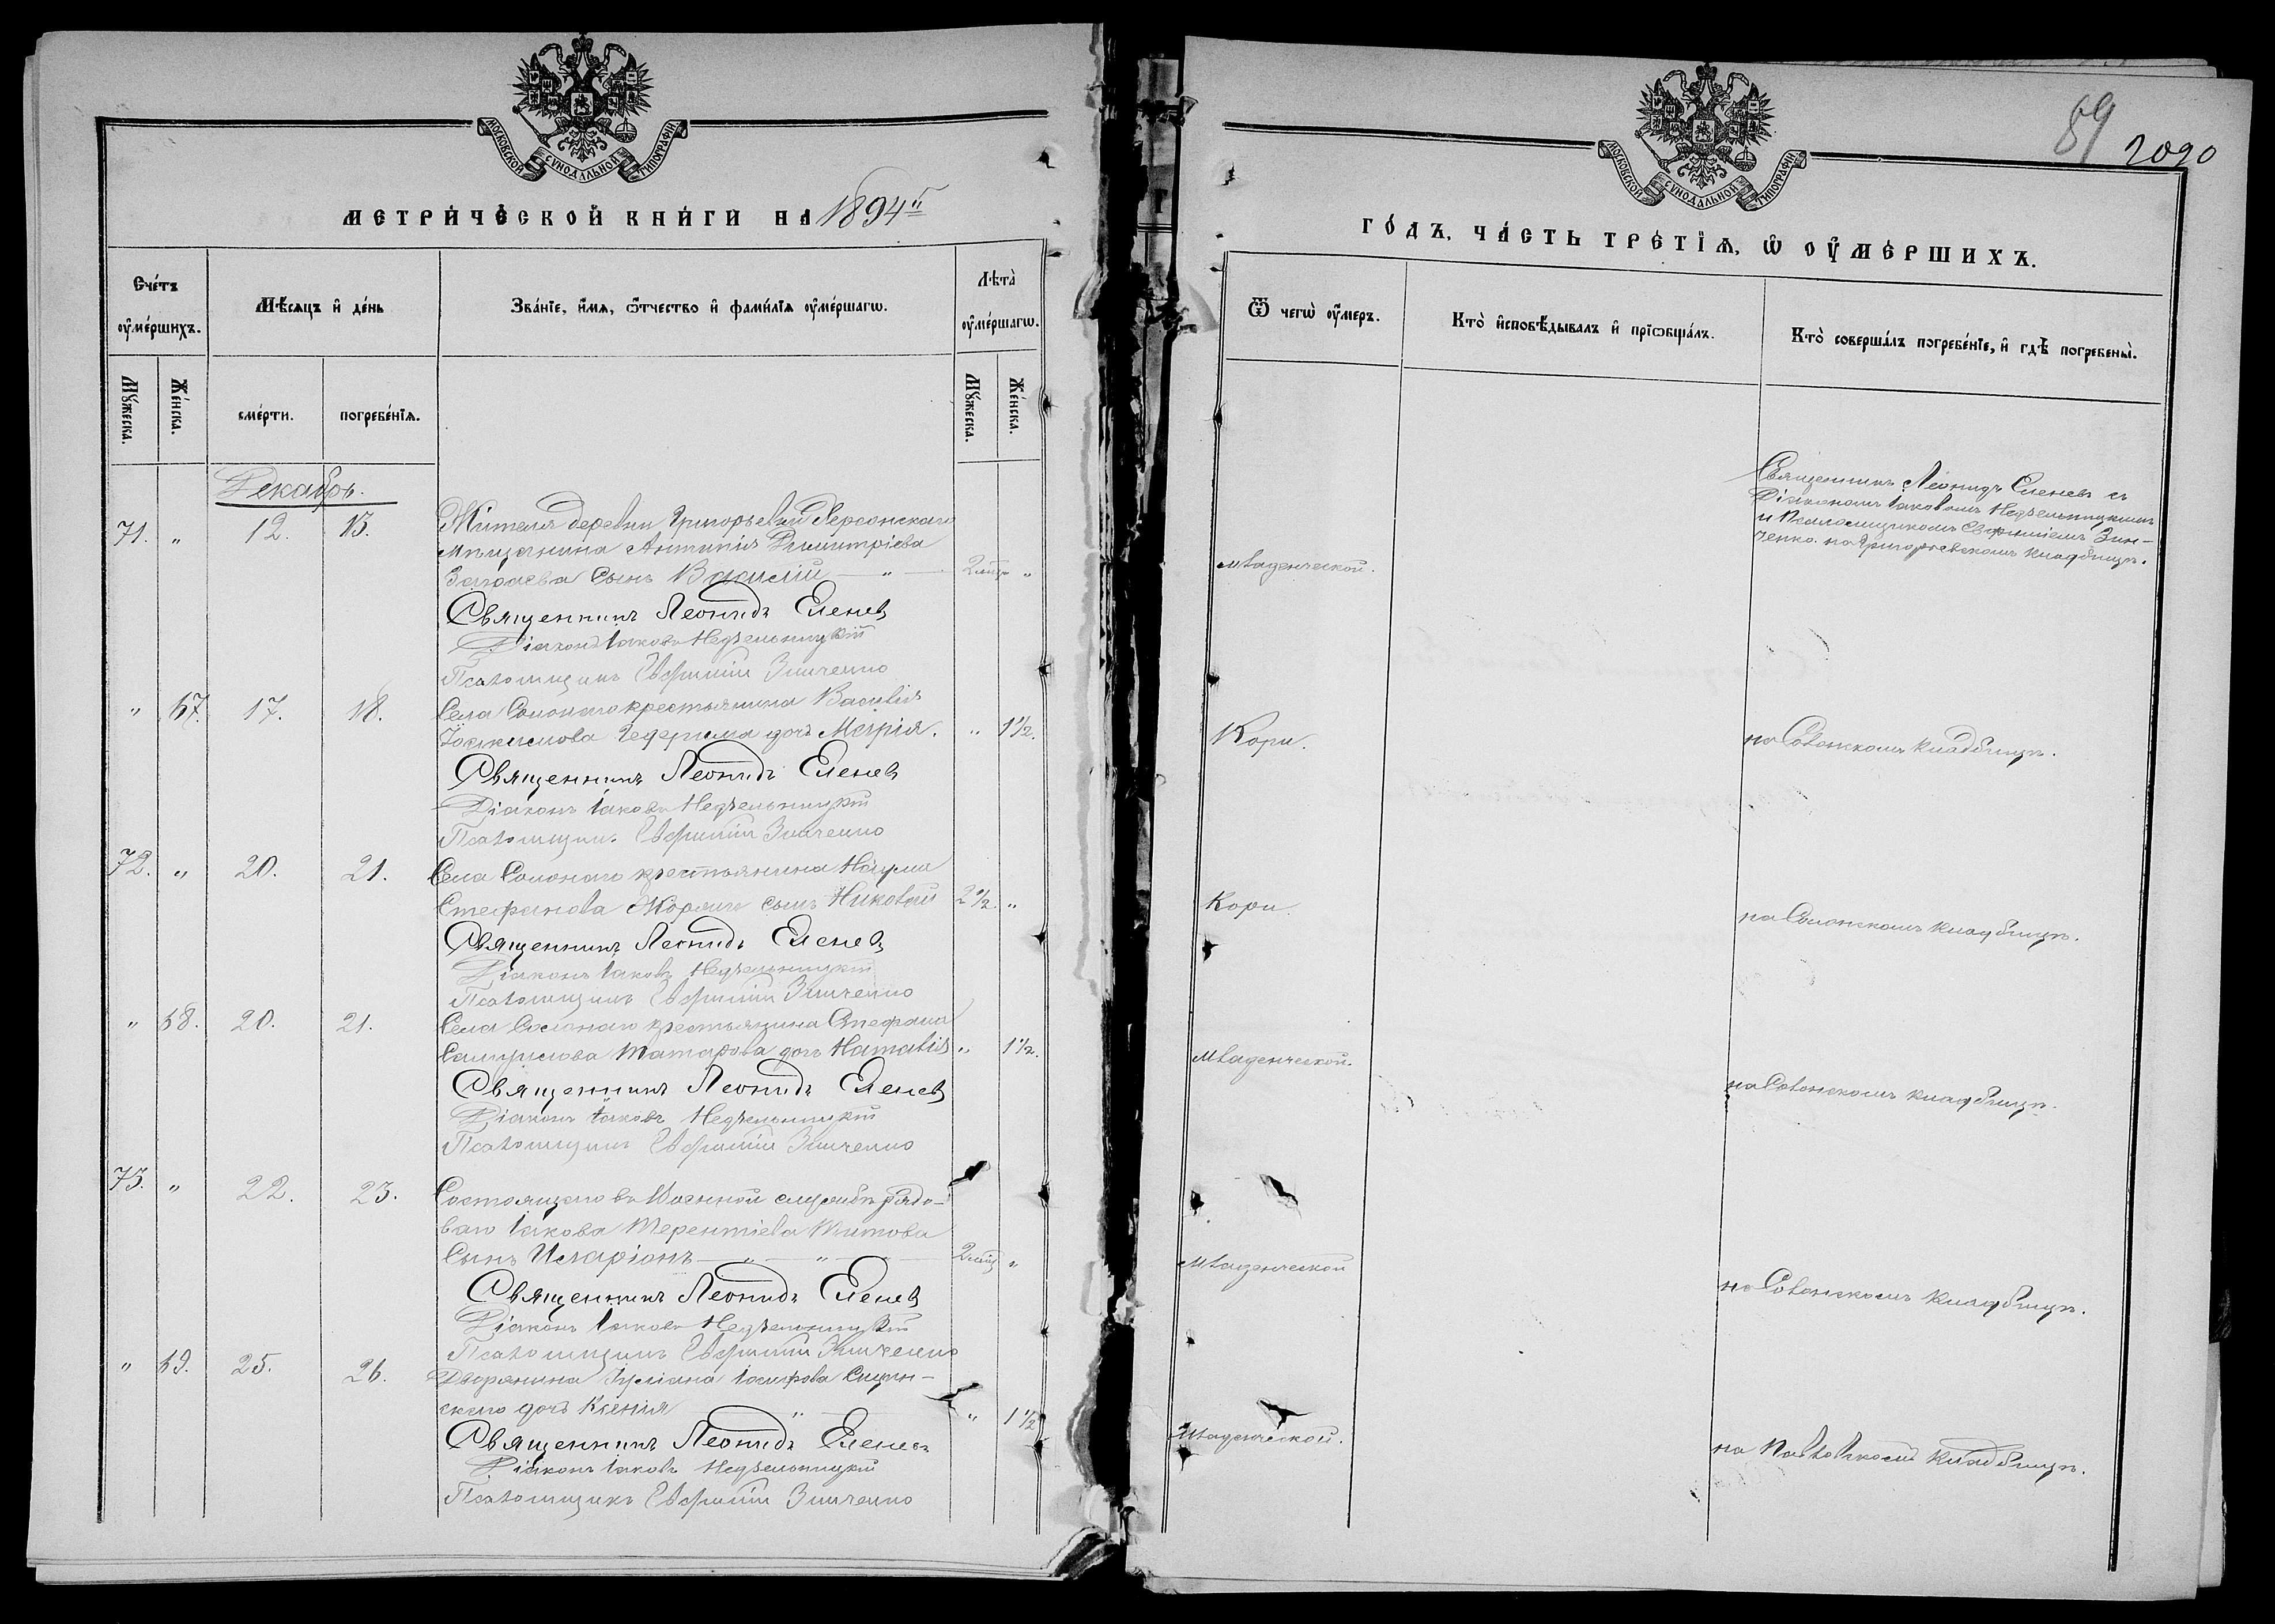 МОСКОВСКОЙ СѴНОДАЛЬНОЙ ТИПОГРАФІИ
МЕТРИ́ЧЕСКОЙ КНИ́ГИ НА 1894й
Сче́тъ ᲂу҆ме́ршихъ.
Мѣ́сяцъ и҆ де́нь
Зва́нїе, и҆́мя, ѻ҆́тчество и҆ фами́лїя ᲂу҆ме́ршагѡ.
Лѣта̀ ᲂу҆ме́ршагѡ.
Мꙋ́жеска.
Же́нска.
сме́рти.
погребе́нїѧ.
Мꙋ́жеска.
Же́нска.
Декабрь.
71. " 12. 13. Жителя деревни Григорьевки Херсонскаго
мѣщанина Антипія Димитріева
сынъ Василій — " — 2 мѣс "
Священникъ Леонидъ Еленев
Діаконъ Іаковъ Недѣльницкій
Псаломщикъ Евфимій Зинченко
" 67. 17. 18. Села Солонаго крестьянина Василія
дочь Марія. " 1 1/2.
Священникъ Леонидъ Еленев
Діаконъ Іаковъ Недѣльницкій
Псаломщик. Евфимій Зинченко
72. " 20. 21. Села Солонаго крестьянина Наума
Стефанова сынъ Николай 2 1/2. "
Священникъ Леонидъ Еленев
Діаконъ Іаковъ Недѣльницкій
Псаломщикъ Евфимій Зинченко
" 68. 20. 21. Села Солонаго крестьянина Стефана
Татарова дочь Наталія " 1 1/2.
Священникъ Леонидъ Еленев
Діаконъ Іаковъ Недѣльницкій
Псаломщикъ Евфимій Зинченко
73. " 22. 23. Состоящаго въ Военной службѣ рядо-
ваго Іакова Терентіева Титова
Сынъ Иларіонъ — " — " — 2 мѣс "
Священникъ Леонидъ Еленев
Діаконъ Іаковъ Недѣльницкій
Псаломщикъ Евфимій Зинченко
" 69. 25. 26. Дворянина Іуліана Іосифова
скаго дочь Ксенія " " 1 1/2
Священникъ Леонидъ Еленев
Діаконъ Іаковъ Недѣльницкій
Псаломщикъ Евфимій Зинченко
МОСКОВСКОЙ СѴНОДАЛЬНОЙ ТИПОГРАФІИ
59 2090
ГО́ДЪ, ЧА́СТЬ ТРЕ́ТЇѦ, Ѡ҆ ОУ҆МЕ́РШИХЪ.
Ѿ чегѡ̀ ᲂу҆́меръ.
Кто̀ и҆сповѣ́дывалъ и҆ прїѡбща́лъ.
Кто̀ соверша́лъ погребе́нїе, и҆ гдѣ̀ погребены̀.
Священникъ Леонидъ Еленевъ съ
Діакономъ Іаковомъ Недѣльницкимъ
и Псаломщикомъ Евфиміемъ Зин-
ченко. на Григорьевскомъ кладбищѣ.
младенческой.
Кори.
на Солонскомъ кладбищѣ.
Кори.
на Солонскомъ кладбищѣ.
младенческой.
на Солонскомъ кладбищѣ.
младенческой
на Солонскомъ кладбищѣ.
младенческой.
на Павловском кладбищѣ.